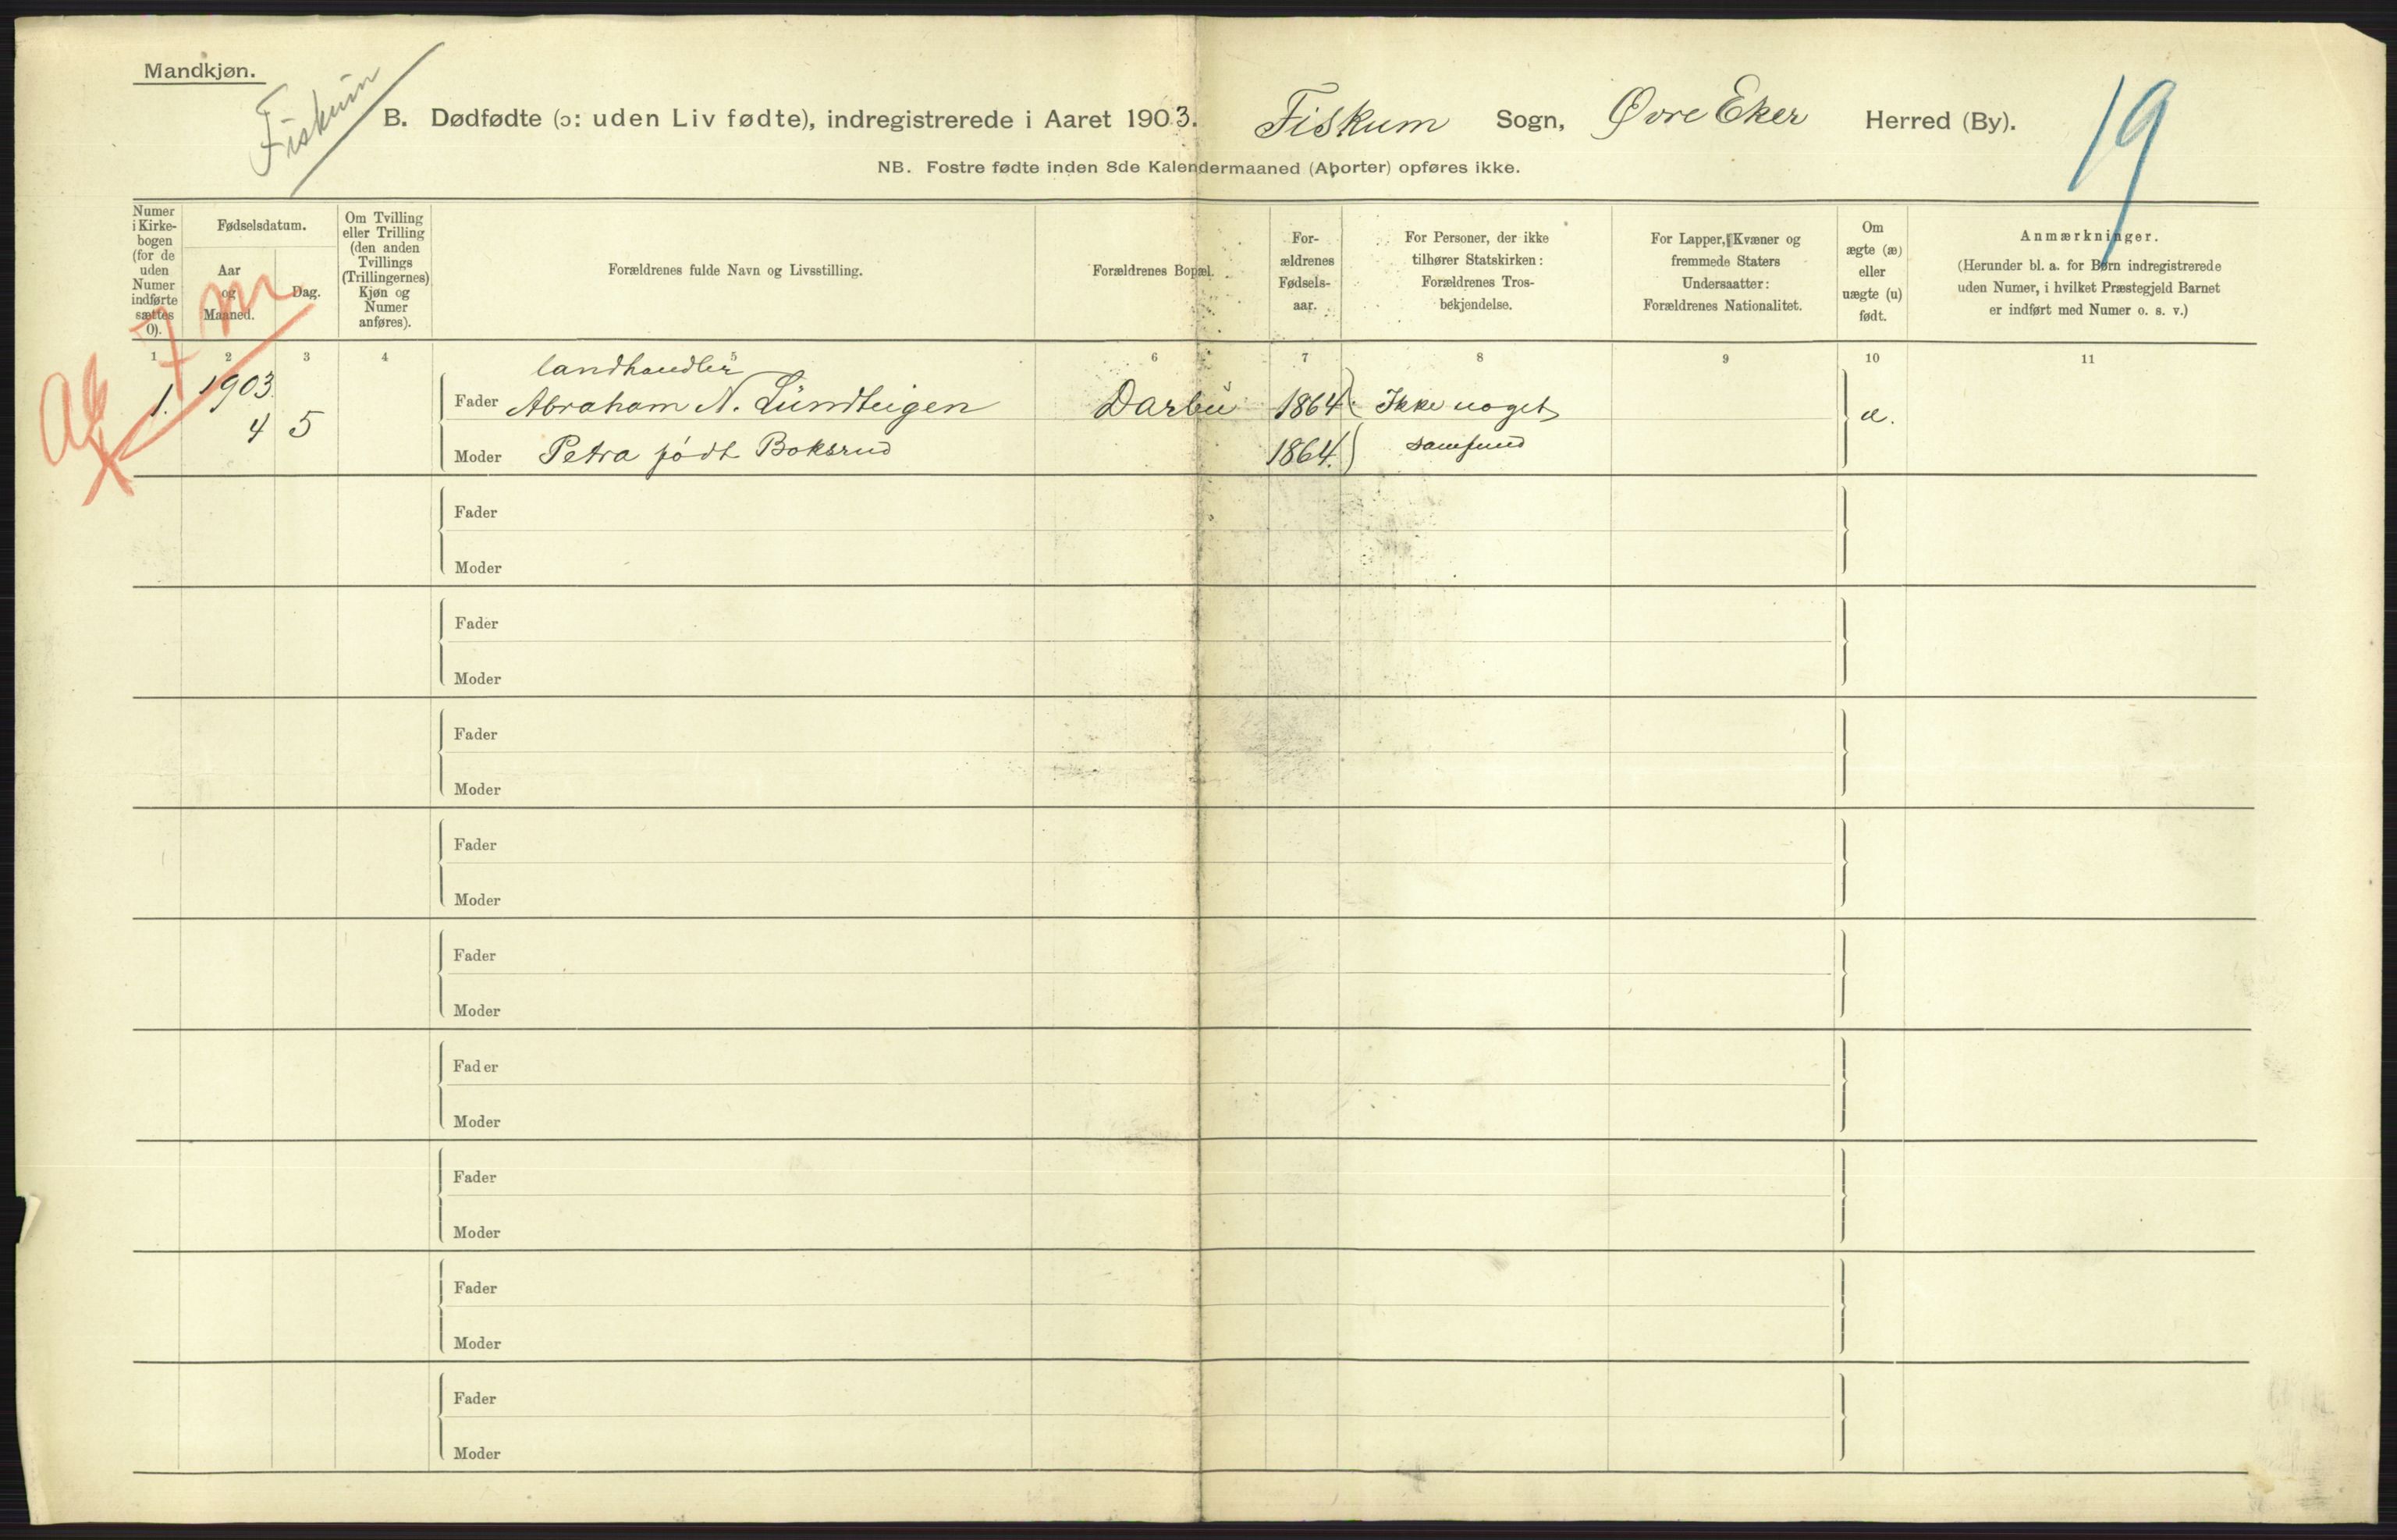 Mandkjøn.
Fiskum
B. Dødfødte (ɔ: uden Liv fødte), indregistrerede i Aaret 1903. Fiskum Sogn, Øvre Eker Herred (By).
19
NB. Fostre fødte inden 8de Kalendermaaned (Aborter) opføres ikke.
Numer
i Kirke-
bogen
(for de
uden
Numer
indførte
sættes
0).
Fødselsdatum.
Aar
og
Maaned.
Dag.
Om Tvilling
eller Trilling
(den anden
Tvillings
(Trillingernes)
Kjøn og
Numer
anføres).
Forældrenes fulde Navn og Livsstilling.
Forældrenes Bopæl.
For-
ældrenes
Fødsels-
aar.
For Personer, der ikke
tilhører Statskirken:
Forældrenes Tros-
bekjendelse.
For Lapper, Kvæner og
fremmede Staters
Undersaatter:
Forældrenes Nationalitet.
Om
ægte (æ)
eller
uægte (u)
født.
Anmærkninger.
(Herunder bl. a. for Børn indregistrerede
uden Numer, i hvilket Præstegjeld Barnet
er indført med Numer o. s. v.)
7 m
1 2 3 4 5 6 7 8 9 10 11
landhandler
1. 1903. Fader Abraham N. Lundteigen Darbu 1864 Ikke noget
4 5 æ.
Moder Petra født Boksrud 1864. samfund
Fader
Moder
Fader
Moder
Fader
Moder
Fader
Moder
Fader
Moder
Fader
Moder
Fader
Moder
Fader
Moder
Fader
Moder